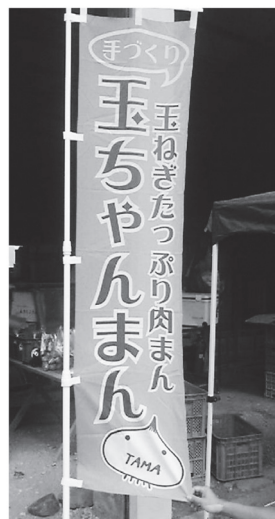 手づくり
玉ねぎたっぷり肉まん
玉ちゃんまん
TAMA